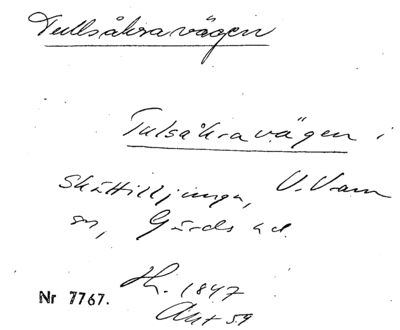 Tullsåkravägen
Tulsåkravägen i
Skättilljunga, V. Vram
sn, Gärds hd.
H. 1847
Nr 7767.
Akt 59